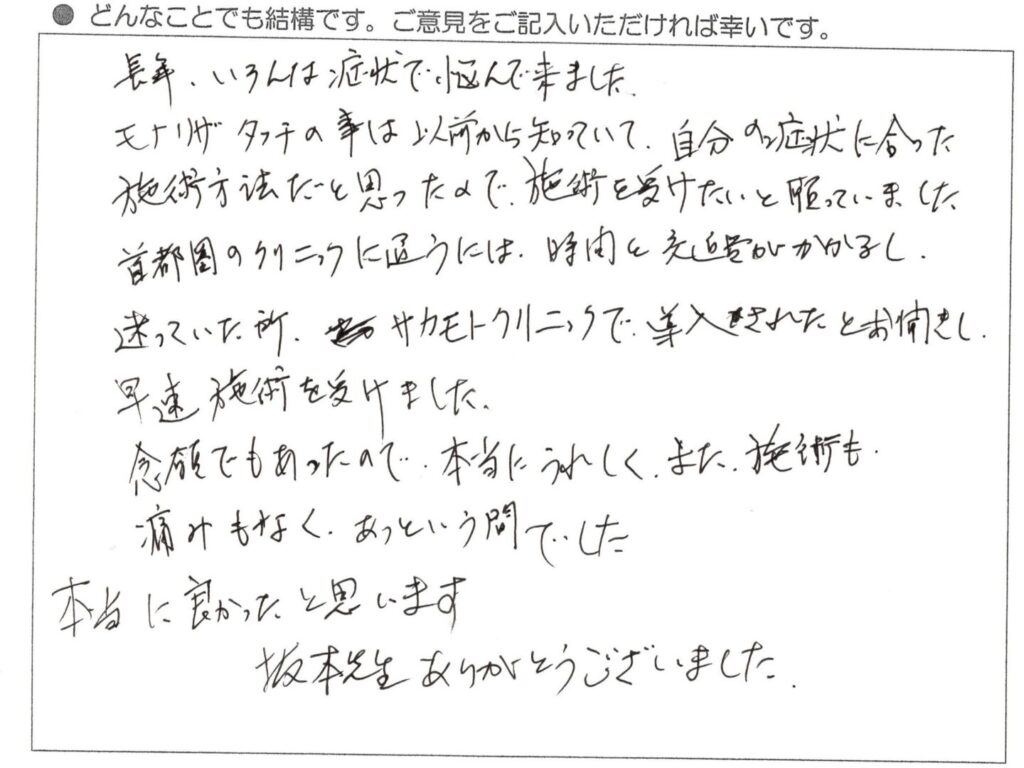 ● どんなことでも結構です。ご意見をご記入いただければ幸いです。
長年、いろんな症状で悩んで来ました。
モナリザタッチの事は以前から知っていて、自分の症状に合った
施術方法だと思ったので、施術を受けたいと願っていました
首都圏のクリニックに通うには、時間と交通費がかかるし、
迷っていた所、サカモトクリニックで、導入されたとお聞きし、
早速施術を受けました。
念願でもあったので、本当にうれしく、また、施術も、
痛みもなく、あっという間でした
本当に良かったと思います
坂本先生ありがとうございました。